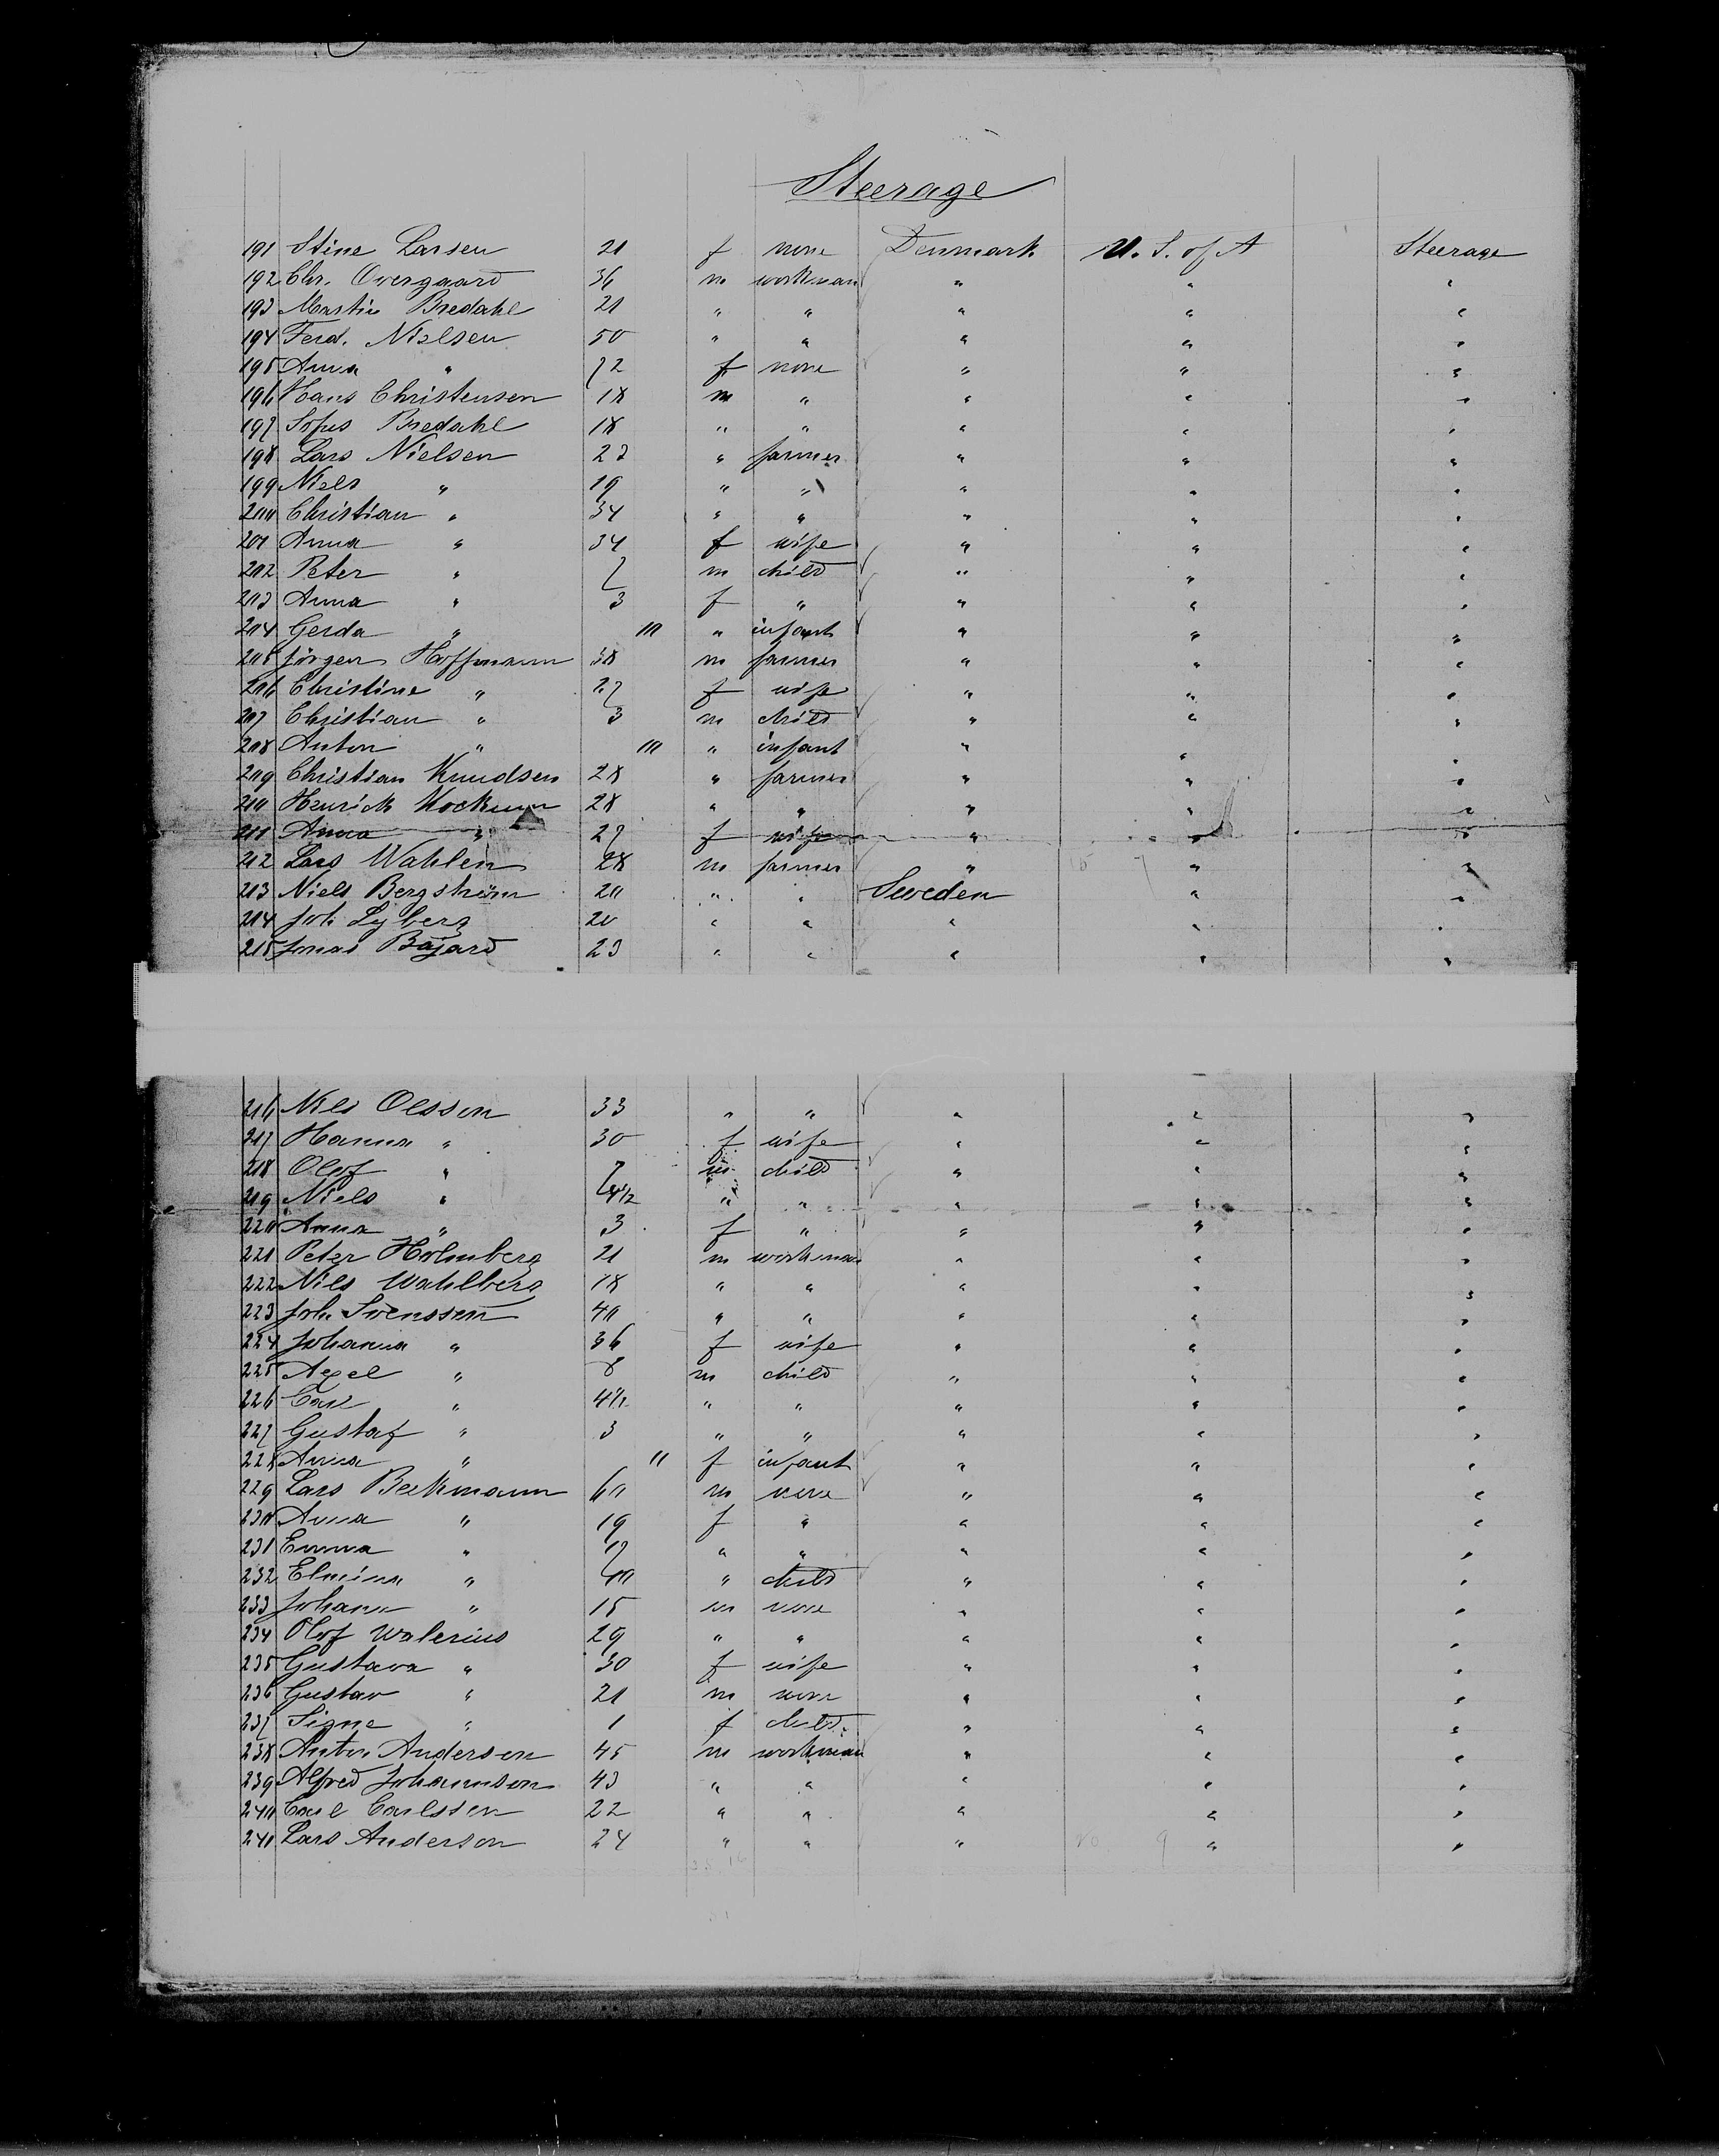 Steerage
191 Stine Larsen 21 f none Denmark U. S. of A Steerage
192 Chr. Overgaard 36 m workman " " "
193 Martin Bredahl 21 " " " " "
194 Ferd. Nielsen 50 " " " " "
195 Anna " 72 f none " " "
196 Hans Christensen 18 m " " " "
197 Sofus Bredahl 18 " " " " "
198 Lars Nielsen 23 " farmer " " "
199 Niels " 19 " " " " "
200 Christian " 34 " " " " "
201 Anna " 34 f wife " " "
202 Peter " 7 m child " " "
203 Anna " 3 f " " " "
204 Gerda " " infant " " "
205 Jörgen Hoffmann 38 m farmer " " "
206 Christine " 27 f wife " " "
207 Christian " 3 m child " " "
208 Anton " " infant " " "
209 Christian Knudsen 28 " farmer " " "
210 Henrick 28 " " " " "
211 Anna " 27 f wife " " "
212 Lars Wahlen 28 m farmer " " "
213 Niels Bergström 20 " " Sweden " "
214 Joh Lyberg 20 " " " " "
215 Jonas 23 " " " " "
216 Nils Olsson 33 " " " " "
217 Hanna " 30 f wife " " "
218 Olof " 7 m child " " "
219 Niels " 4 1/2 " " " " "
220 Anna " 3 f " " " "
221 Peter Holmberg 21 m workman " " "
222 Nils Wahlberg 18 " " " " "
223 Joh. Svensson 40 " " " " "
224 Johanna " 36 f wife " " "
225 Axel " 8 m child " " "
226 Carl " 4 1/2 " " " " "
227 Gustaf " 3 " " " " "
228 Anna " 11 f infant " " "
229 Lars Beckmann 60 m none " " "
230 Anna " 19 f " " " "
231 Emma " 17 " " " " "
232 Elmina " 10 " child " " "
233 Johann " 15 m none " " "
234 Olof Walerius 29 " " " " "
235 Gustava " 30 f wife " " "
236 Gustav " 21 m none " " "
237 Signe " 1 f child " " "
238 Anton Anderson 45 m workman " " "
239 Alfred Johannson 43 " " " " "
240 Carl Carlsson 22 " " " " "
241 Lars Anderson 24 " " " " "